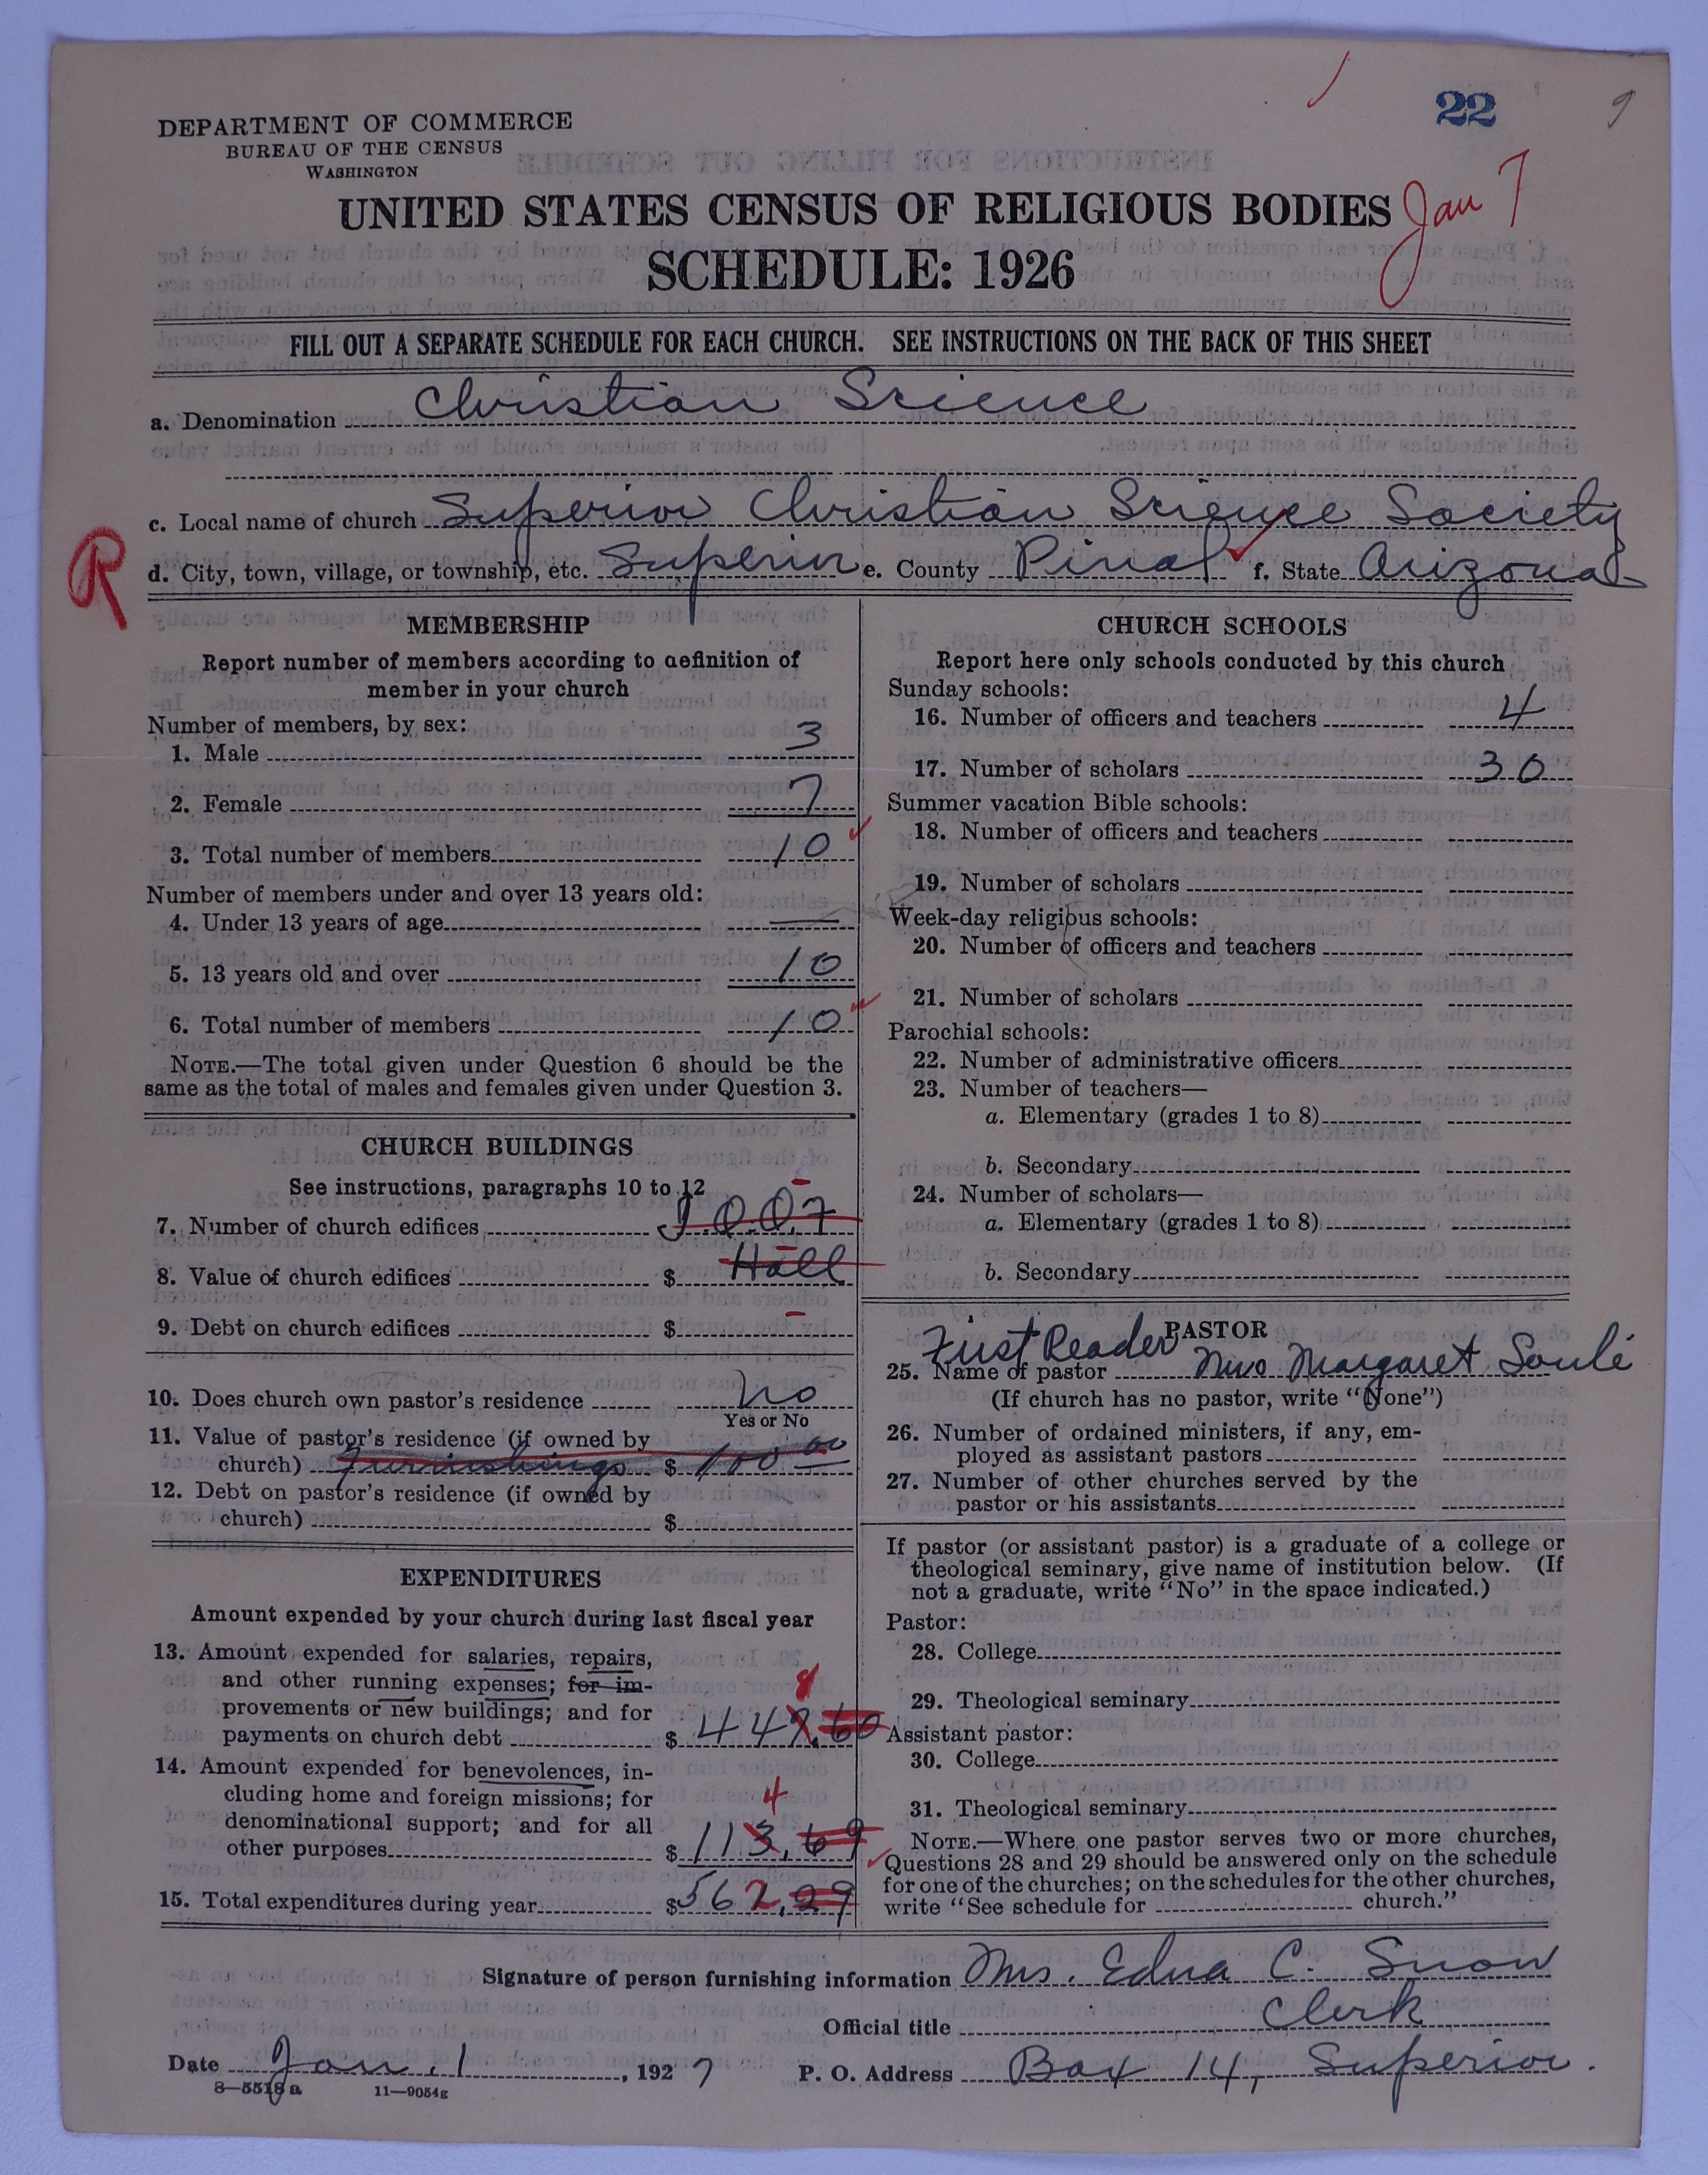 22
9
DEPARTMENT OF COMMERCE
BUREAU OF THE CENSUS
WASHINGTON
UNITED STATES CENSUS OF RELIGIOUS BODIES
Jan 7
SCHEDULE: 1926
FILL OUT A SEPARATE SCHEDULE FOR EACH CHURCH. SEE INSTRUCTIONS ON THE BACK OF THIS SHEET
a. Denomination Christian Science
c. Local name of church Superior Christian Science Society
R
d. City, town, village, or township, etc. Superior e. County Pinal f. State Arizona
MEMBERSHIP
Report number of members according to definition of
member in your church
Number of members, by sex:
1. Male 3
2. Female 7
3. Total number of members 10
Number of members under and over 13 years old:
4. Under 13 years of age —
5. 13 years old and over 10
6. Total number of members 10
NOTE.—The total given under Question 6 should be the
same as the total of males and females given under Question 3.
CHURCH BUILDINGS
See instructions, paragraphs 10 to 12
7. Number of church edifices I.O.O.F
8. Value of church edifices $ Hall
9. Debt on church edifices $ -
10. Does church own pastor's residence No
Yes or No
11. Value of pastor's residence (if owned by
church) Furnishings $ 100 00
12. Debt on pastor's residence (if owned by
church) $
EXPENDITURES
Amount expended by your church during last fiscal year
13. Amount expended for salaries, repairs,
and other running expenses; for im-
provements or new buildings; and for
8
payments on church debt $ 447.60
14. Amount expended for benevolences, in-
cluding home and foreign missions; for
4
denominational support; and for all
other purposes $ 113.69
15. Total expenditures during year $562.29
CHURCH SCHOOLS
Report here only schools conducted by this church
Sunday schools:
16. Number of officers and teachers 4
17. Number of scholars 30
Summer vacation Bible schools:
18. Number of officers and teachers
19. Number of scholars
Week-day religious schools:
20. Number of officers and teachers
21. Number of scholars
Parochial schools:
22. Number of administrative officers
23. Number of teachers—
a. Elementary (grades 1 to 8)
b. Secondary
24. Number of scholars—
a. Elementary (grades 1 to 8)
b. Secondary
PASTOR
First Reader
25. Name of pastor Mrs Margaret Soulé
(If church has no pastor, write "None")
26. Number of ordained ministers, if any, em-
ployed as assistant pastors
27. Number of other churches served by the
pastor or his assistants
If pastor (or assistant pastor) is a graduate of a college or
theological seminary, give name of institution below. (If
not a graduate, write "No" in the space indicated.)
Pastor:
28. College
29. Theological seminary
Assistant pastor:
30. College
31. Theological seminary
NOTE.—Where one pastor serves two or more churches,
Questions 28 and 29 should be answered only on the schedule
for one of the churches; on the schedules for the other churches,
write "See schedule for church."
Signature of person furnishing information Mrs. Edna C. Snow
Official title Clerk
Date Jan. 1, 1927 P. O. Address Box 14, Superior.
8—5518a 11—9054g